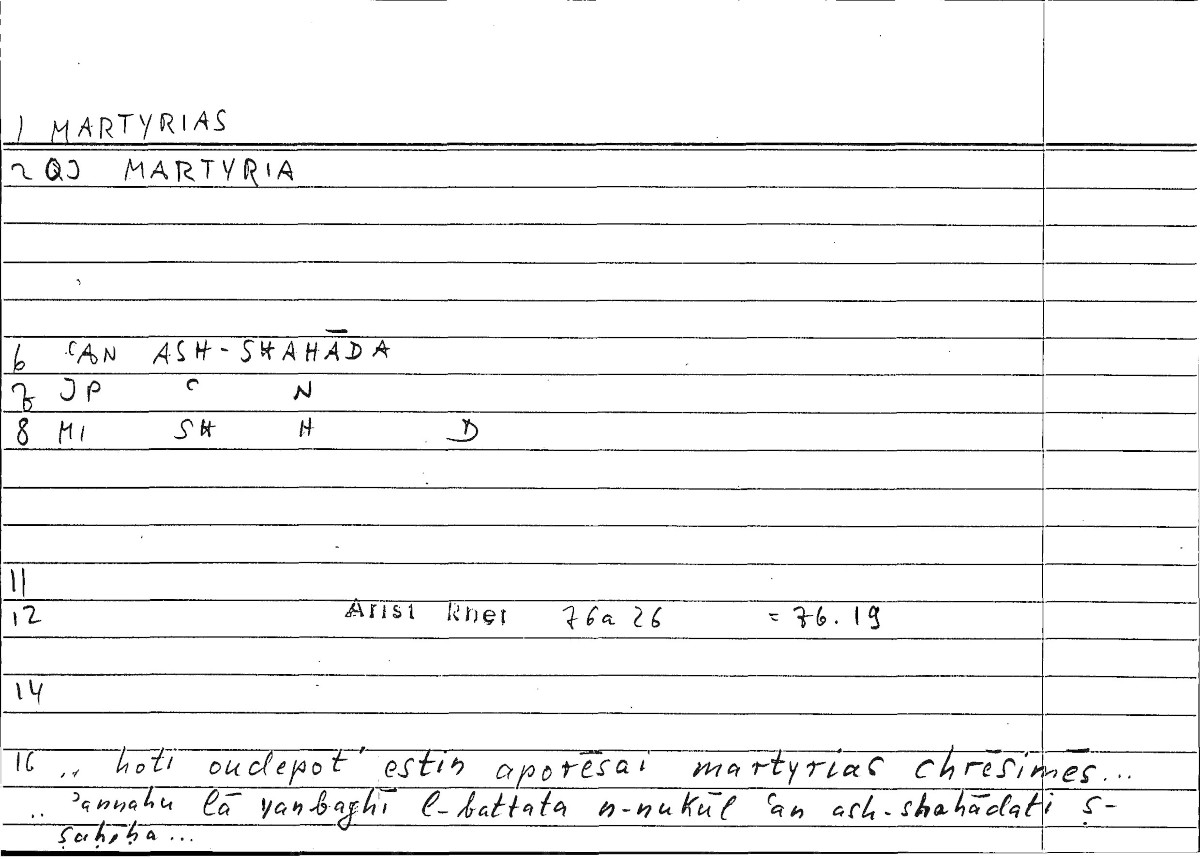 1 MARTYRIAS
2 QJ MARTYRIA
6 ʿAN ASH-SHAHĀDA
7 JP ʿ N
8 MI SH H D
11
12 Arist Rhet 76a 26 = 76.19
14
16 .. hoti oudepot' estin aporēsai martyrias chrēsimēs...
.. ʾannahu lā yanbaghī l-battata n-nukūl ʿan ash-shahādati ṣ-
ṣaḥīḥa...